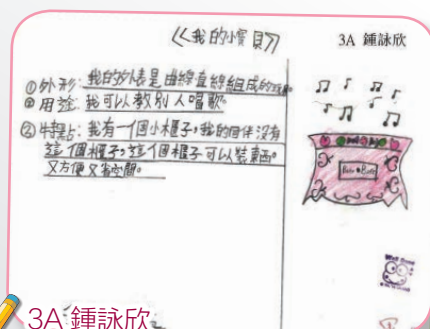 《我的小寶貝》
3A 鍾詠欣
①外形：我的外表是曲線直線組成的
②用途：我可以教別人唱歌。
③特點：我有一個小櫃子，我的同伴沒有
這個櫃子，這個櫃子可以裝東西。
又方便又省空間。
3A 鍾詠欣